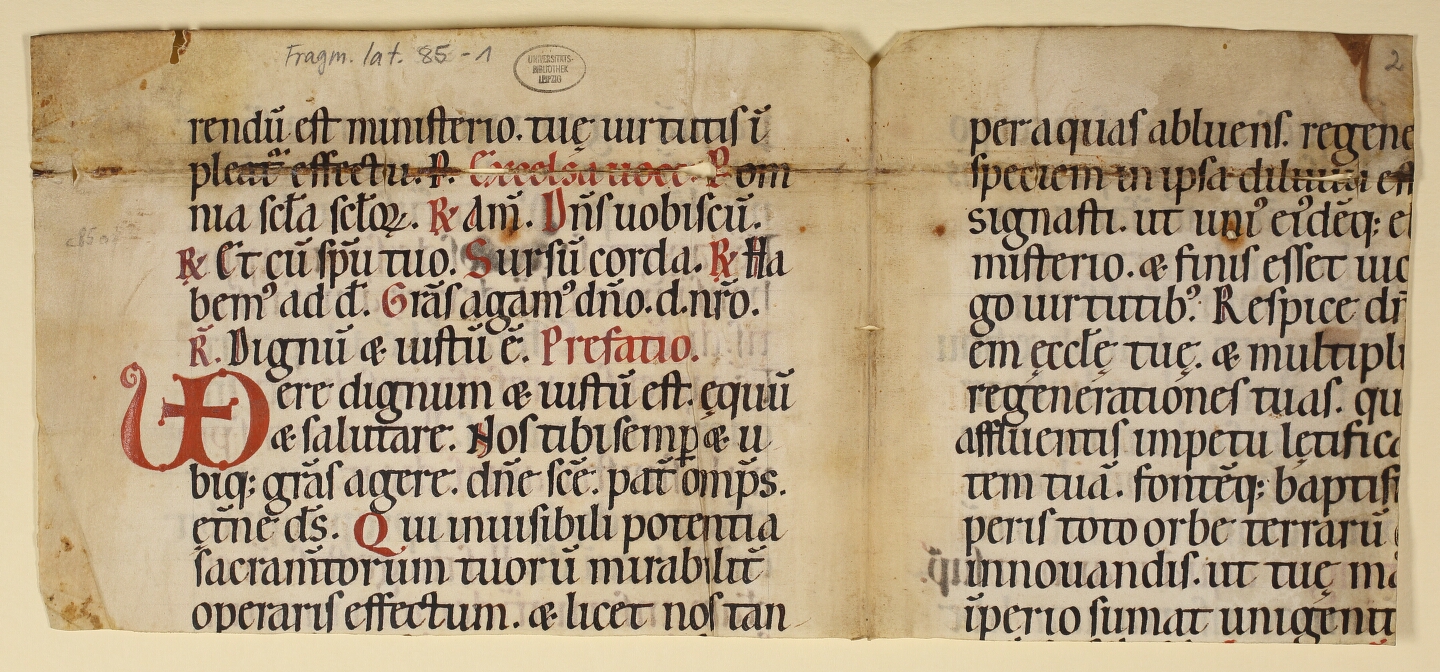 Fragm. lat. 85 - 1
UNIVERSITÄTS-
BIBLIOTHEK
LEIPZIG
2
rendū est ministerio. tuę uirtutis ī
pleat᷑ effectu. P. Excelsa uoce. P om
nia scl̄a scl̄oꝝ. ℞ Am̄. Dn̄s uobiscū.
℞ Et cū sp̄u tuo. Sursū corda. ℞ Ha
bemꝰ ad d̄. Grās agamꝰ dn̄o. d. nr̄o.
R̄. Dignū & iustū ē. Prefatio.
Vere dignum & iustū est. ęquū
& salutare. Nos tibi semꝑ & u
biq; grās agere. dn̄e scē. pat̄ omp̄s.
ęt̄ne ds̄. Qui inuisibili potentia
sacram̄torum tuorū mirabilit̄
operaris effectum. & licet nos tan
per aquas abluens. regene
speciem in ipsa diluuii eff
signasti. ut uniꝰ eiꝰdēq; el
misterio. & finis esset uic
go uirtutibꝰ. Respice dn̄
em ęcclę tuę. & multipli
regęnerationes tuas. qu
affluentis impetu lętifica
tem tuā. fontēq; baptis
peris toto orbe terrarū
innouandis. ut tuę ma
īperio sumat unigęniti